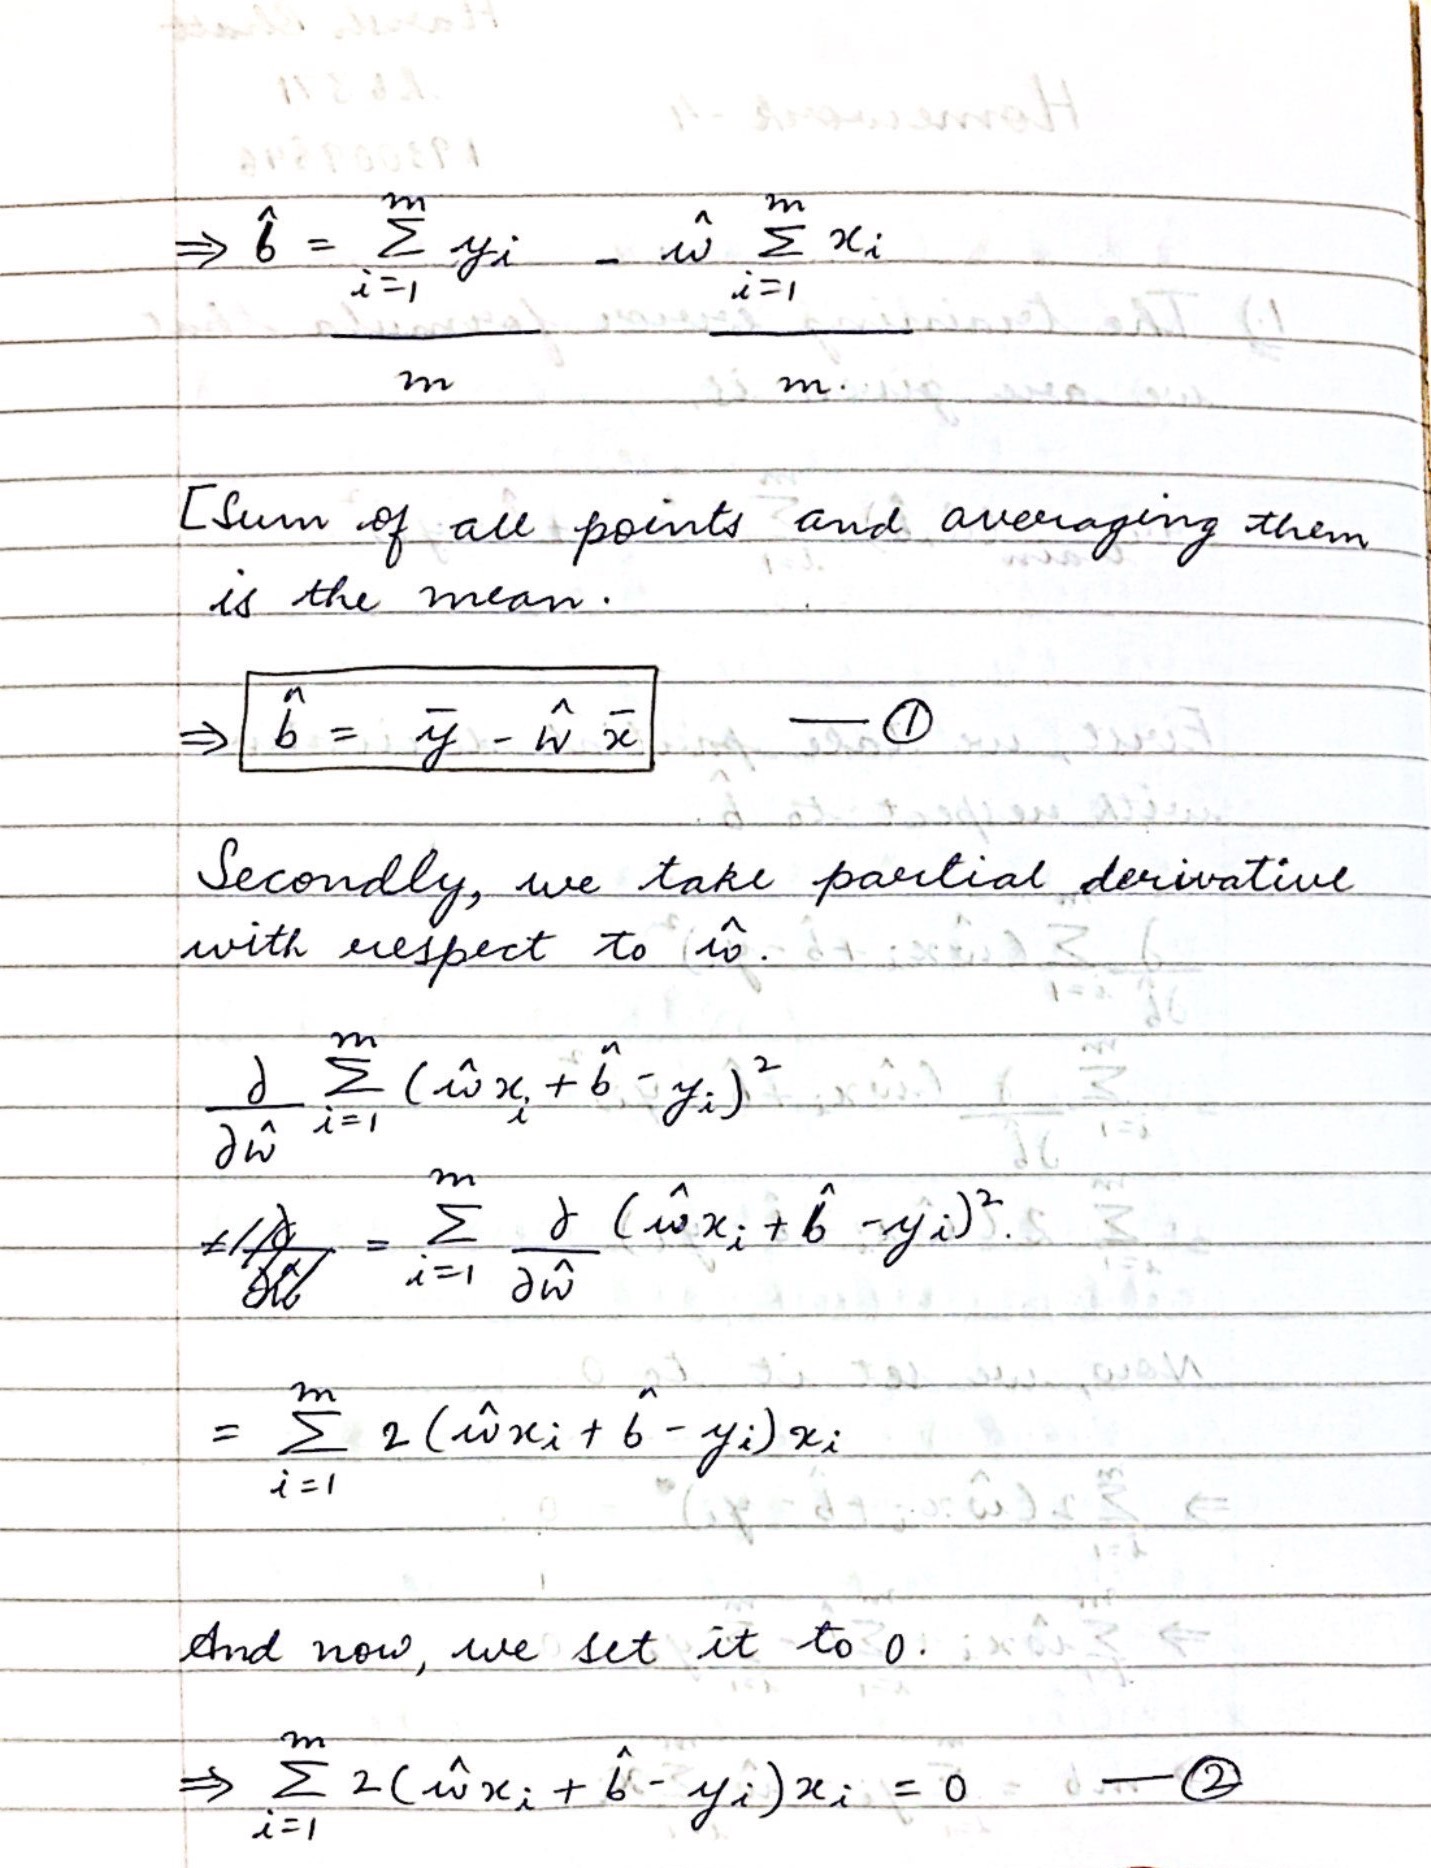 ⇒ b̂ = Σ_{i=1}^{m} y_i / m - ŵ Σ_{i=1}^{m} x_i / m.
[Sum of all points and averaging them
is the mean.
⇒ b̂ = ȳ - ŵ x̄ — ①
Secondly, we take partial derivative
with respect to ŵ.
∂/∂ŵ Σ_{i=1}^{m} (ŵx_i + b̂ - y_i)²
= Σ_{i=1}^{m} ∂/∂ŵ (ŵx_i + b̂ - y_i)².
= Σ_{i=1}^{m} 2(ŵx_i + b̂ - y_i)x_i
And now, we set it to 0.
⇒ Σ_{i=1}^{m} 2(ŵx_i + b̂ - y_i)x_i = 0 — ②